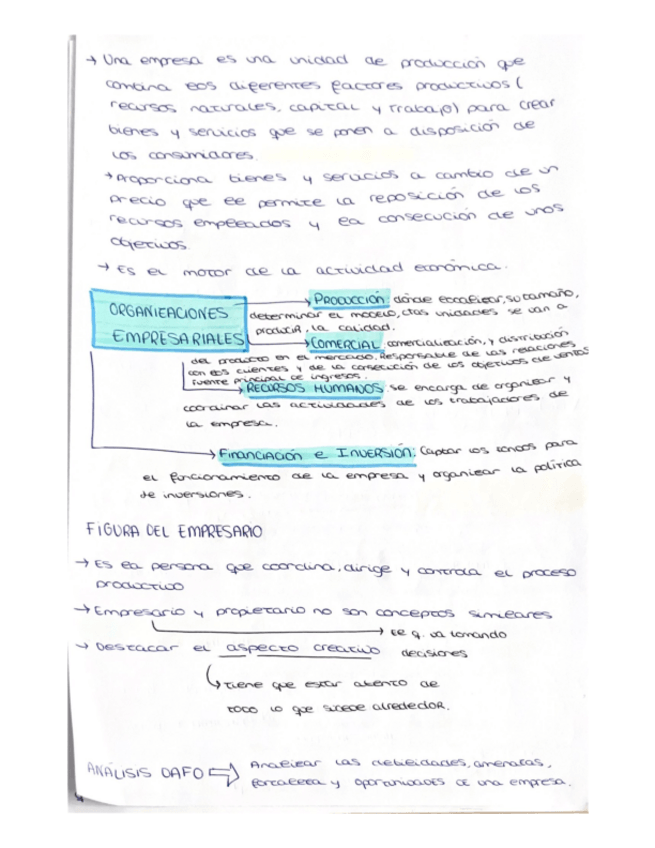 → Una empresa es una unidad de producción que
combina los diferentes factores productivos (
recursos naturales, capital y trabajo) para crear
bienes y servicios que se ponen a disposición de
los consumidores.
→ Proporciona bienes y servicios a cambio de un
precio que le permite la reposición de los
recursos empleados y la consecución de unos
objetivos.
→ Es el motor de la actividad económica.
ORGANIZACIONES
EMPRESARIALES
→ PRODUCCIÓN: dónde localizar, su tamaño,
determinar el modelo, ctas unidades se van a
producir, la calidad.
→ COMERCIAL: comercialización, y distribución
del producto en el mercado. Responsable de las relaciones
con los clientes y de la consecución de los objetivos de ventas
fuente principal de ingresos.
→ RECURSOS HUMANOS: se encarga de organizar y
coordinar las actividades de los trabajadores de
la empresa.
→ Financiación e INVERSIÓN: Captar los fondos para
el funcionamiento de la empresa y organizar la política
de inversiones.
FIGURA DEL EMPRESARIO
→ Es la persona que coordina, dirige y controla el proceso
productivo
→ Empresario y propietario no son conceptos similares
→ El q. va tomando
decisiones
→ Destacar el aspecto creativo
→ tiene que estar atento de
todo lo que sucede alrededor.
ANÁLISIS DAFO ⇨ Analizar las debilidades, amenazas,
fortaleza y oportunidades de una empresa.